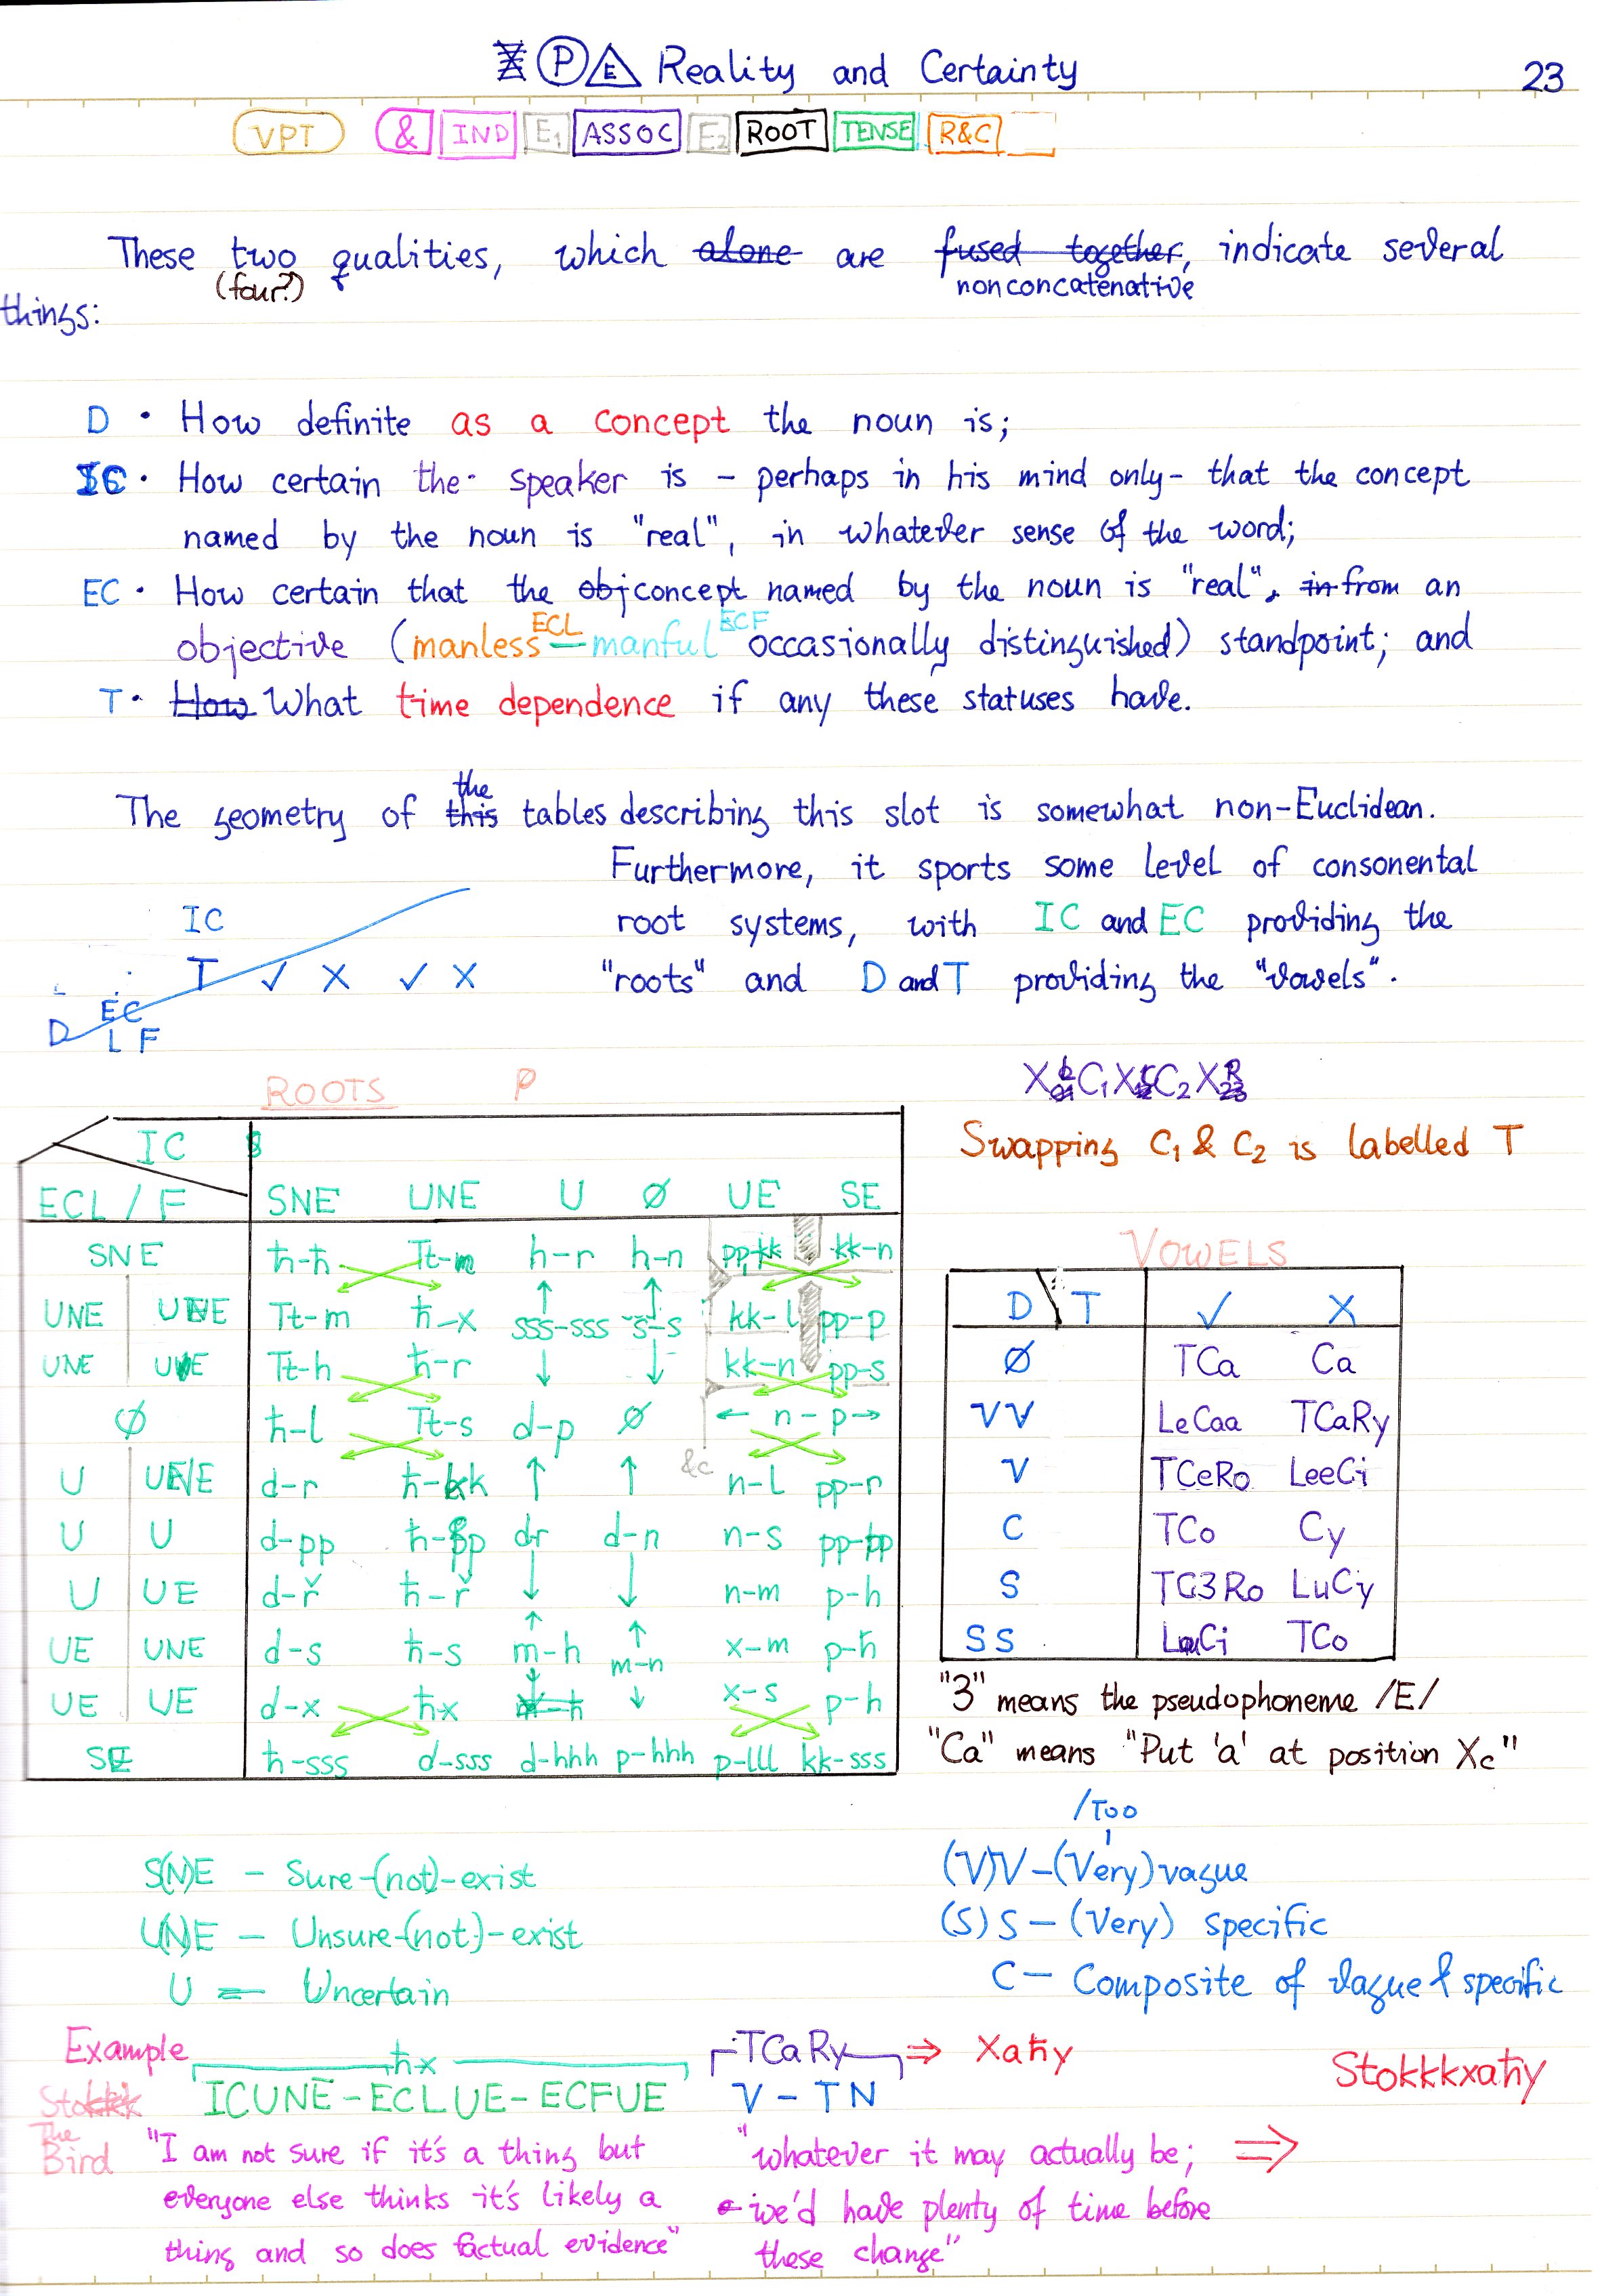 Ⓟ Reality and Certainty 23
VPT & IND E₁ ASSOC E₂ ROOT TENSE R&C
These two qualities, which alone are fused together, indicate several
(four?) nonconcatenative
things:
D • How definite as a concept the noun is;
IC • How certain the speaker is – perhaps in his mind only – that the concept
named by the noun is "real", in whatever sense of the word;
EC • How certain that the obj concept named by the noun is "real", in from an
objective (manless ECL – manful ECF occasionally distinguished) standpoint; and
T • How What time dependence if any these statuses have.
the
The geometry of this tables describing this slot is somewhat non-Euclidean.
Furthermore, it sports some level of consonental
root systems, with IC and EC providing the
"roots" and D and T providing the "vowels".
IC
T ✓ X ✓ X
EC
D L F
ROOTS
Swapping C₁ & C₂ is labelled T
IC
ECL / F SNE UNE U Ø UE SE
SNE ħ-ħ Tt-m h-r h-n pp-kk kk-n
UNE UNE Tt-m ħ-x sss-sss s-s kk-l pp-p
UNE UE Tt-h ħ-r kk-n pp-s
Ø ħ-l Tt-s d-p Ø ← n-p →
&c
U UNE d-r ħ-kk n-l pp-r
U U d-pp ħ-pp dr d-n n-s pp-pp
U UE d-ř ħ-ř n-m p-h
UE UNE d-s ħ-s m-h m-n x-m p-ħ
UE UE d-x ħx x-s p-h
SE ħ-sss d-sss d-hhh p-hhh p-lll kk-sss
VOWELS
D \ T ✓ X
Ø TCa Ca
VV LeCaa TCaRy
V TCeRo LeeCi
C TCo Cy
S TC3Ro LuCy
SS LuCi TCo
"3" means the pseudophoneme /E/
"Ca" means "Put 'a' at position Xc"
/Too
S(N)E – Sure-(not)-exist
U(N)E – Unsure-(not)-exist
U – Uncertain
(V)V – (Very) vague
(S)S – (Very) specific
C – Composite of vague & specific
Example ħx TCaRy ⇒ Xaħy Stokkkxaħy
Stokkk ICUNE-ECLUE-ECFUE V-TN
The
Bird "I am not sure if it's a thing but
everyone else thinks it's likely a
thing and so does factual evidence"
"whatever it may actually be; ⇒
we'd have plenty of time before
these change"